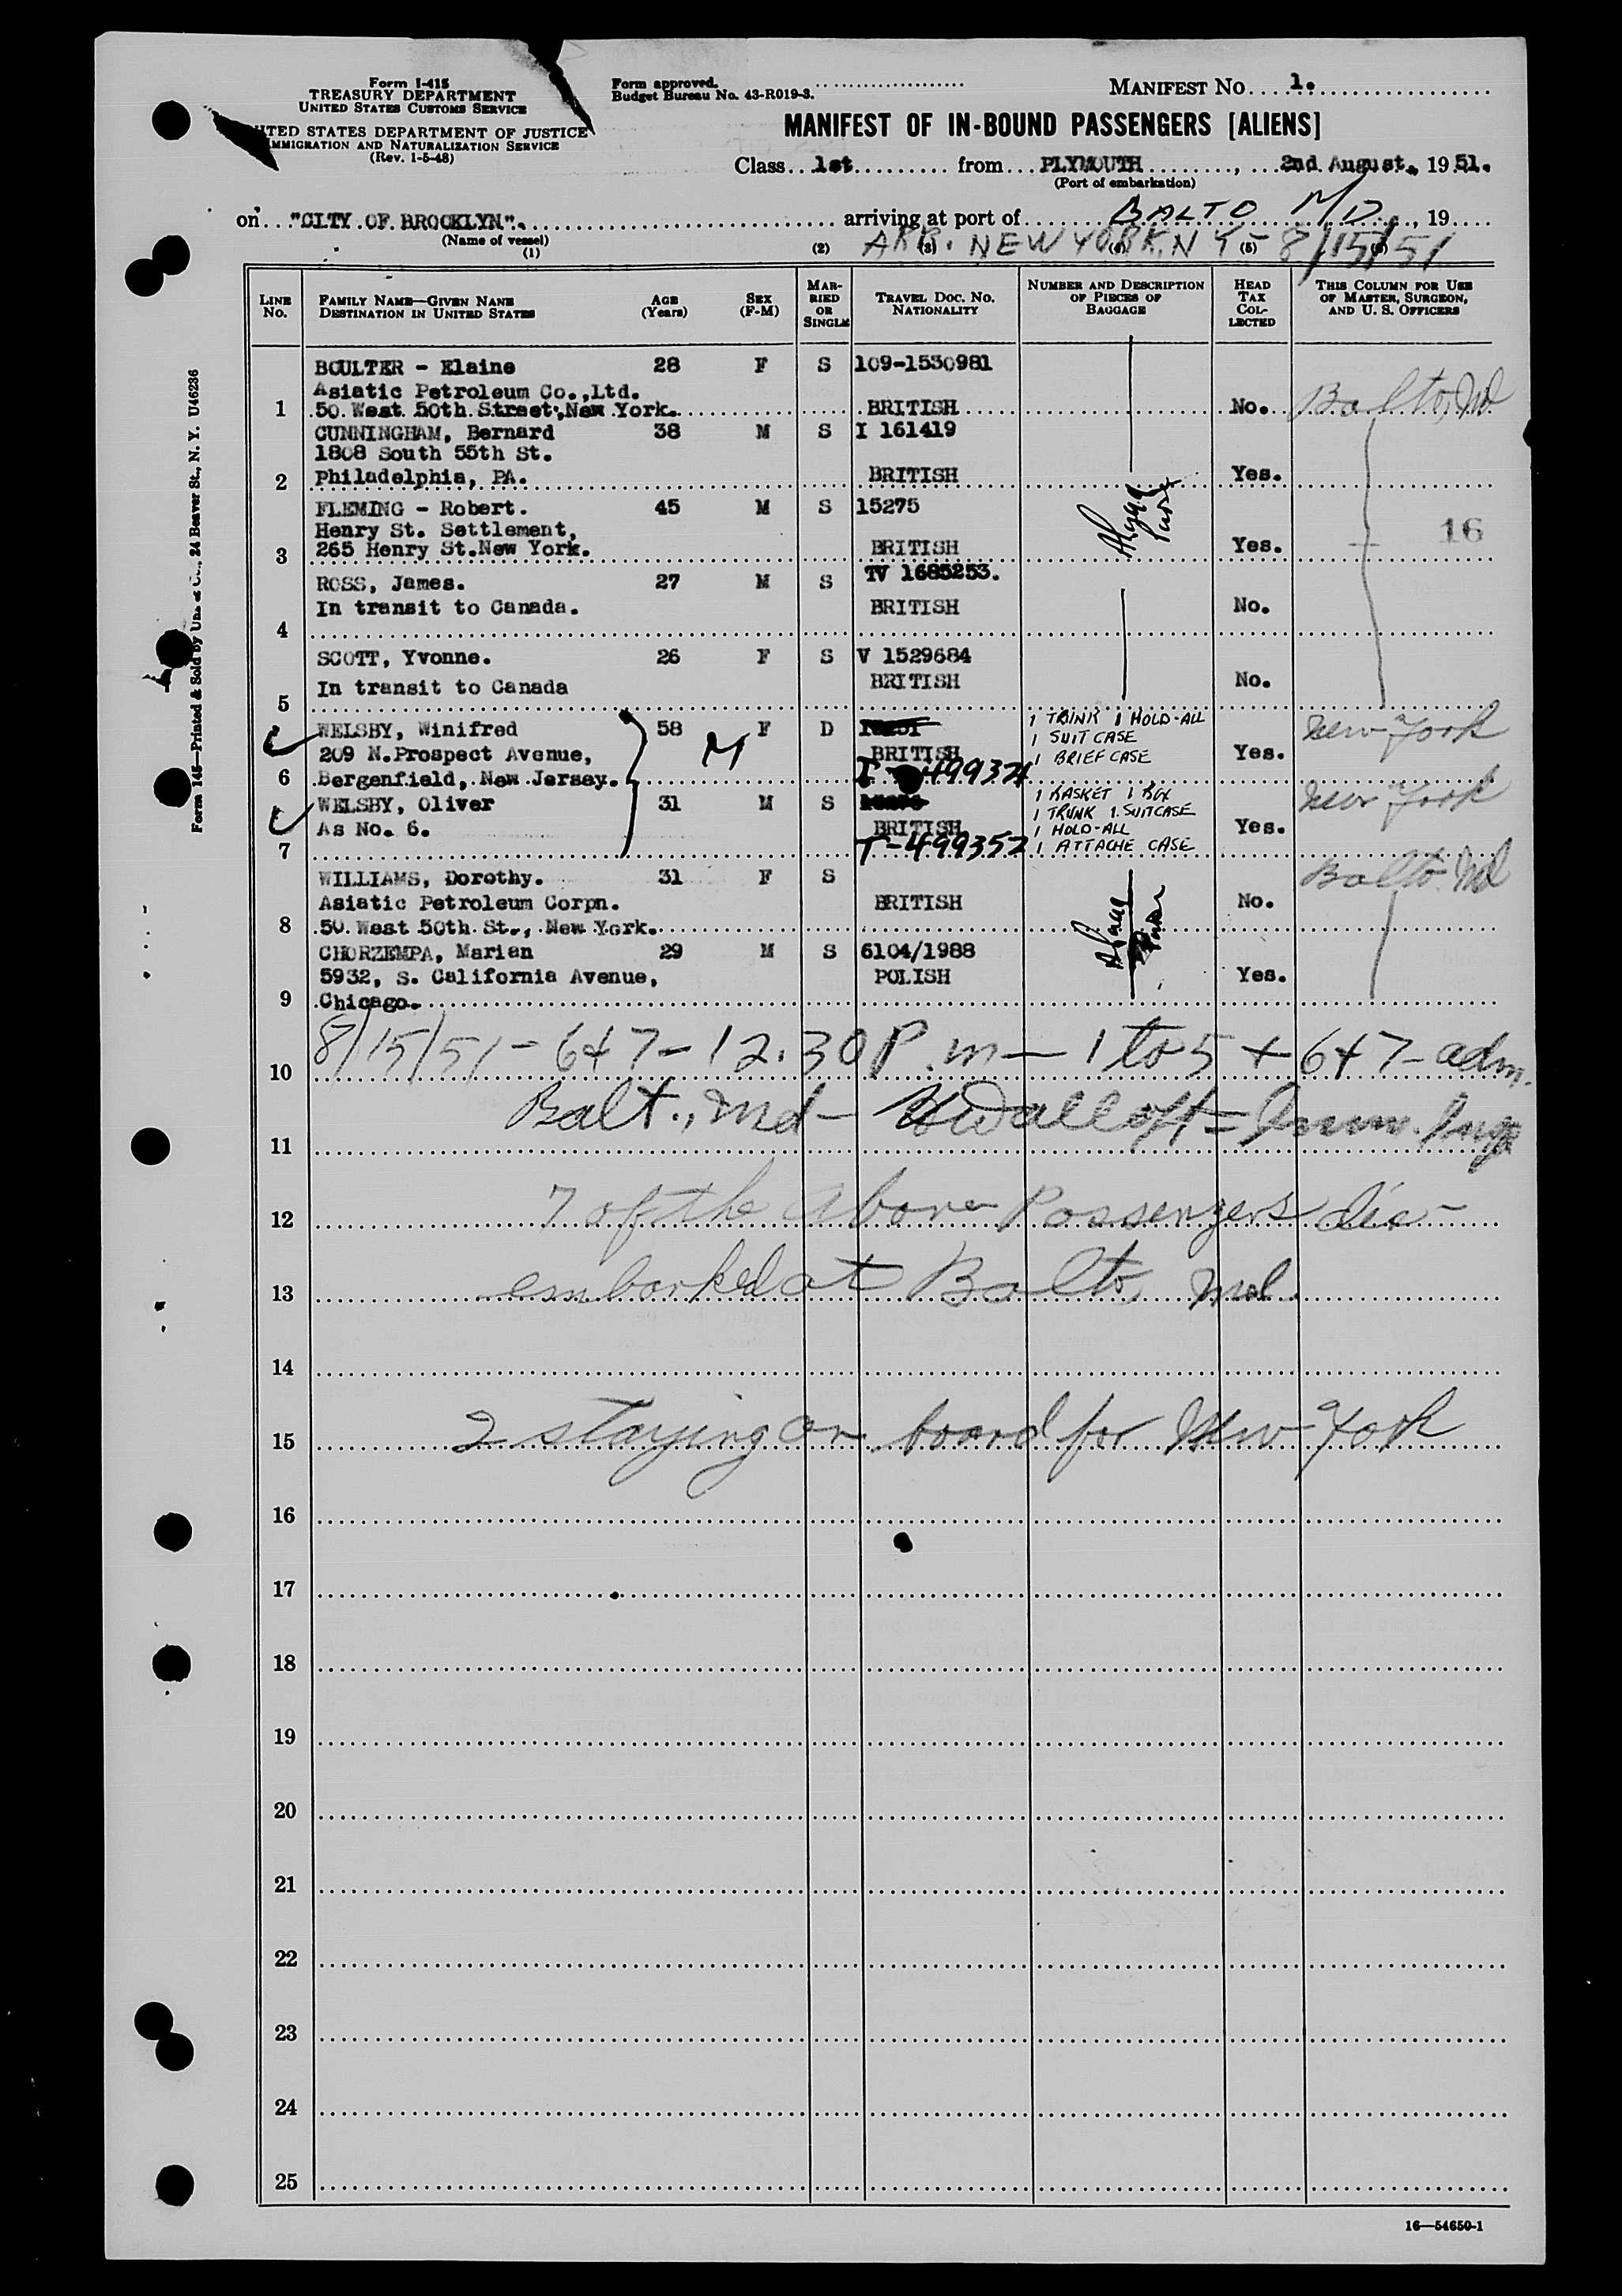 Form I-415
TREASURY DEPARTMENT
UNITED STATES CUSTOMS SERVICE
UNITED STATES DEPARTMENT OF JUSTICE
IMMIGRATION AND NATURALIZATION SERVICE
(Rev. 1-5-48)
Form approved.
Budget Bureau No. 43-R019-3.
MANIFEST NO. 1.
MANIFEST OF IN-BOUND PASSENGERS [ALIENS]
Class 1st from PLYMOUTH, 2nd August, 1951.
(Port of embarkation)
on "CITY OF BROOKLYN". arriving at port of BALTO MD, 19
(Name of vessel)
ARR. NEW YORK, N Y - 8/15/51
(1) (2) (3) (4) (5) (6)
LINE NO.
FAMILY NAME—GIVEN NAME
DESTINATION IN UNITED STATES
AGE (Years)
SEX (F-M)
MARRIED OR SINGLE
TRAVEL DOC. NO.
NATIONALITY
NUMBER AND DESCRIPTION OF PIECES OF BAGGAGE
HEAD TAX COLLECTED
THIS COLUMN FOR USE OF MASTER, SURGEON, AND U. S. OFFICERS
BOULTER - Elaine 28 F S 109-1530981
Asiatic Petroleum Co.,Ltd.
1 50 West 50th Street, New York. BRITISH No. Balto, Md
CUNNINGHAM, Bernard 38 M S I 161419
1808 South 55th St.
2 Philadelphia, PA. BRITISH Yes.
FLEMING - Robert. 45 M S 15275
Henry St. Settlement,
3 265 Henry St.New York. BRITISH Yes. 16
ROSS, James. 27 M S TV 1685253.
In transit to Canada. BRITISH No.
4
SCOTT, Yvonne. 26 F S V 1529684
In transit to Canada BRITISH No.
5
WELSBY, Winifred 58 M F D 1 TRUNK 1 HOLD-ALL New York
209 N.Prospect Avenue, BRITISH 1 SUIT CASE Yes.
6 Bergenfield, New Jersey. 1 BRIEF CASE
WELSBY, Oliver 31 M S 1 BASKET 1 BOX New York
As No. 6. BRITISH 1 TRUNK 1 SUITCASE Yes.
7 T-499352 1 HOLD-ALL
1 ATTACHE CASE
WILLIAMS, Dorothy. 31 F S Balto. Md
Asiatic Petroleum Corpn. BRITISH No.
8 50 West 50th St., New York.
CHORZEMPA, Marian 29 M S 6104/1988
5932, S. California Avenue, POLISH Yes.
9 Chicago.
10 8/15/51 - 6+7 - 12.30 P.m — 1 to 5 + 6+7 - adm.
11 Balt., Md -
12 7 of the above Passengers dis-
13 embarked at Balto, Md.
14
15 2 staying on board for New York
16
17
18
19
20
21
22
23
24
25
16—54650-1
24 Beaver St., N. Y. U46236